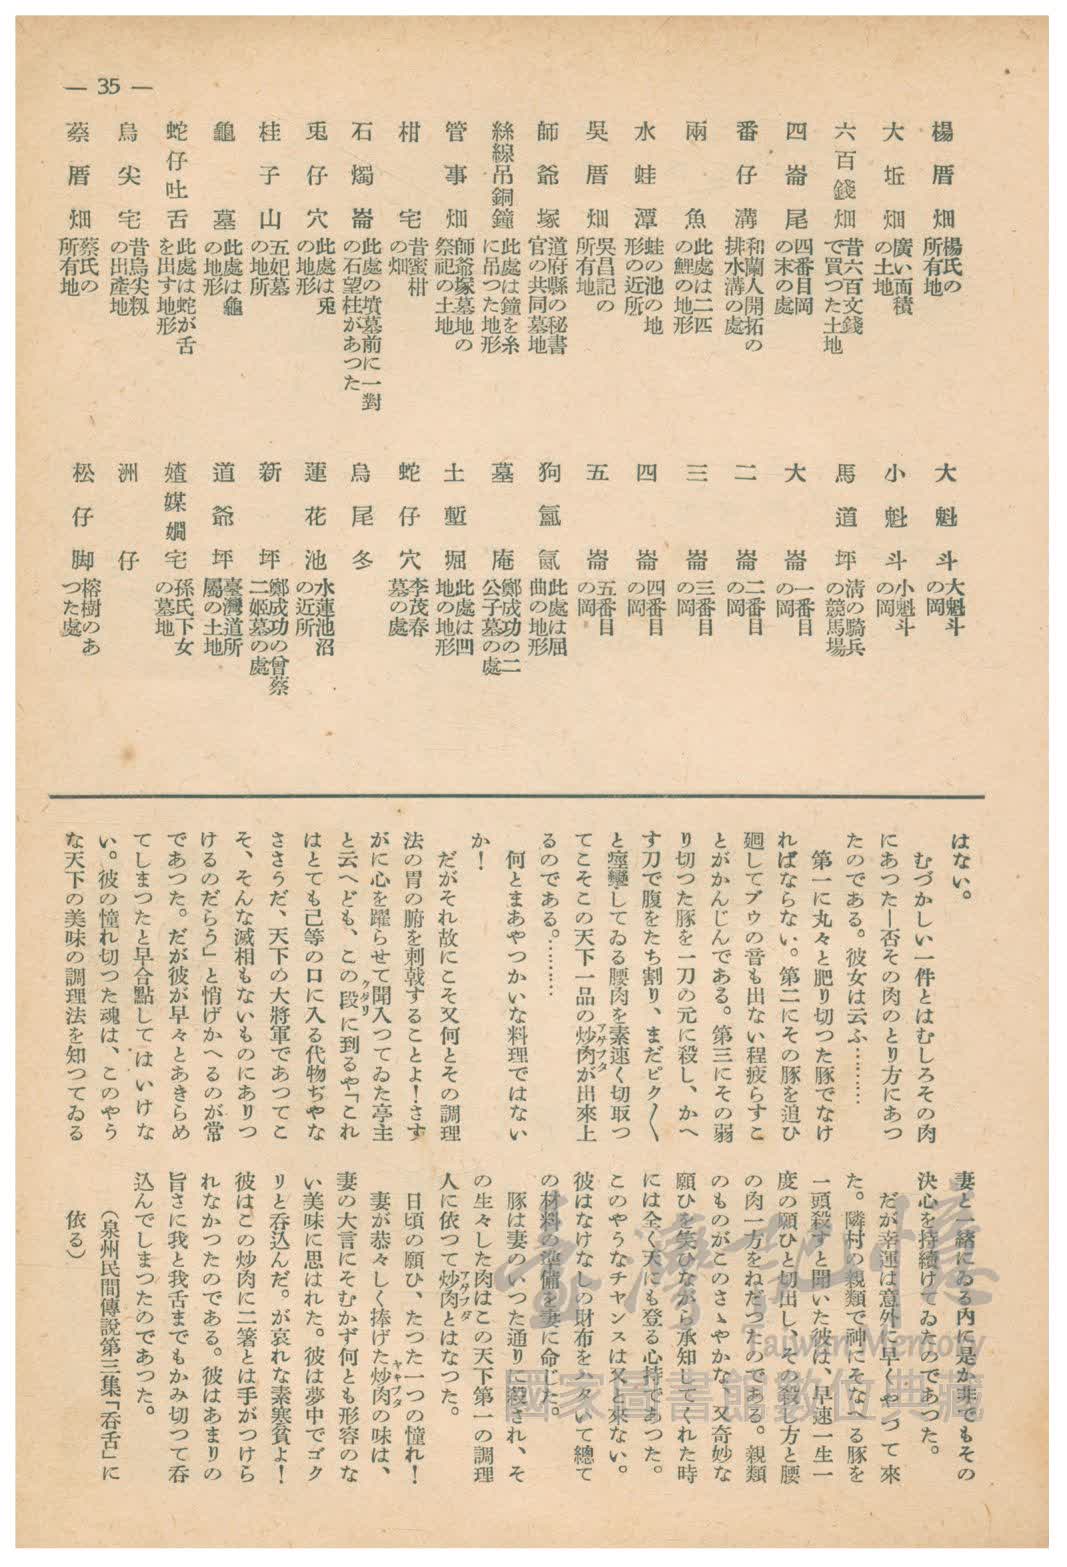 — 35 —
楊厝畑 楊氏の所有地
大坵畑 廣い面積の土地
六百錢畑 昔六百文錢で買つた土地
四崙尾 四番目岡の末の處
番仔溝 和蘭人開拓の排水溝の處
兩魚 此處は二匹の鯉の地形
水蛙潭 蛙の池の地形の近所
吳厝畑 吳昌記の所有地
師爺塚 道府縣の秘書官の共同墓地
絲線吊銅鐘 此處は鐘を糸に吊つた地形
管事畑 師爺塚墓地の祭祀の土地
柑宅 昔蜜柑の畑
石燭崙 此處の墳墓前に一對の石望柱があつた
兎仔穴 此處は兎の地形
桂子山 五妃墓の地所
龜墓 此處は龜の地形
蛇仔吐舌 此處は蛇が舌を出す地形
烏尖宅 昔烏尖籾の出產地
蔡厝畑 蔡氏の所有地
大魁斗 大魁斗の岡
小魁斗 小魁斗の岡
馬道坪 淸の騎兵の競馬場
大崙 一番目の岡
二崙 二番目の岡
三崙 三番目の岡
四崙 四番目の岡
五崙 五番目の岡
狗氳氤 此處は屈曲の地形
墓庵 鄭成功の二公子墓の處
土塹堀 此處は凹地の地形
蛇仔穴 李茂春墓の處
烏尾冬
蓮花池 水蓮池沼の近所
新坪 鄭成功の曾蔡二姬墓の處
道爺坪 臺灣道所屬の土地
媠媒嫺宅 孫氏下女の墓地
洲仔
松仔脚 榕樹のあつた處
はない。
むづかしい一件とはむしろその肉
にあつた—否その肉のとり方にあつ
たのである。彼女は云ふ………
第一に丸々と肥り切つた豚でなけ
ればならない。第二にその豚を追ひ
廻してブウの音も出ない程疲らすこ
とがかんじんである。第三にその弱
り切つた豚を一刀の元に殺し、かへ
す刀で腹をたち割り、まだピク〱
と痙攣してゐる腰肉を素速く切取つ
てこそこの天下一品の炒肉アゲブタが出來上
るのである。………
何とまあやつかいな料理ではない
か！
だがそれ故にこそ又何とその調理
法の胃の腑を刺戟することよ！さす
がに心を躍らせて聞入つてゐた亭主
と云へども、この段クダリに到るや「これ
はとても己等の口に入る代物ぢやな
ささうだ、天下の大將軍であつてこ
そ、そんな滅相もないものにありつ
けるのだらう」と悄げかへるのが常
であつた。だが彼が早々とあきらめ
てしまつたと早合點してはいけな
い。彼の憧れ切つた魂は、このやう
な天下の美味の調理法を知つてゐる
妻と一緖にゐる內に是か非でもその
決心を持續けてゐたのであつた。
だが幸運は意外に早くやつて來
た。隣村の親類で神にそなへる豚を
一頭殺すと聞いた彼は、早速一生一
度の願ひと切出し、その殺し方と腰
の肉一方をねだつたのである。親類
のものがこのさゝやかな、又奇妙な
願ひを笑ひながら承知してくれた時
には全く天にも登る心持であつた。
このやうなチヤンスは又と來ない。
彼はなけなしの財布をハタいて總て
の材料の準備を妻に命じた。
豚は妻のいつた通りに殺され、そ
の生々した肉はこの天下第一の調理
人に依つて炒肉アゲブタとはなつた。
日頃の願ひ、たつた一つの憧れ！
妻が恭々しく捧げた炒肉キヤブタの味は、
妻の大言にそむかず何とも形容のな
い美味に思はれた。彼は夢中でゴク
リと呑込んだ。が哀れな素寒貧よ！
彼はこの炒肉に二箸とは手がつけら
れなかつたのである。彼はあまりの
旨さに我と我舌までもかみ切つて呑
込んでしまつたのであつた。
（泉州民間傳說第三集「呑舌」に
依る）
臺灣記憶
Taiwan Memory
國家圖書館數位典藏